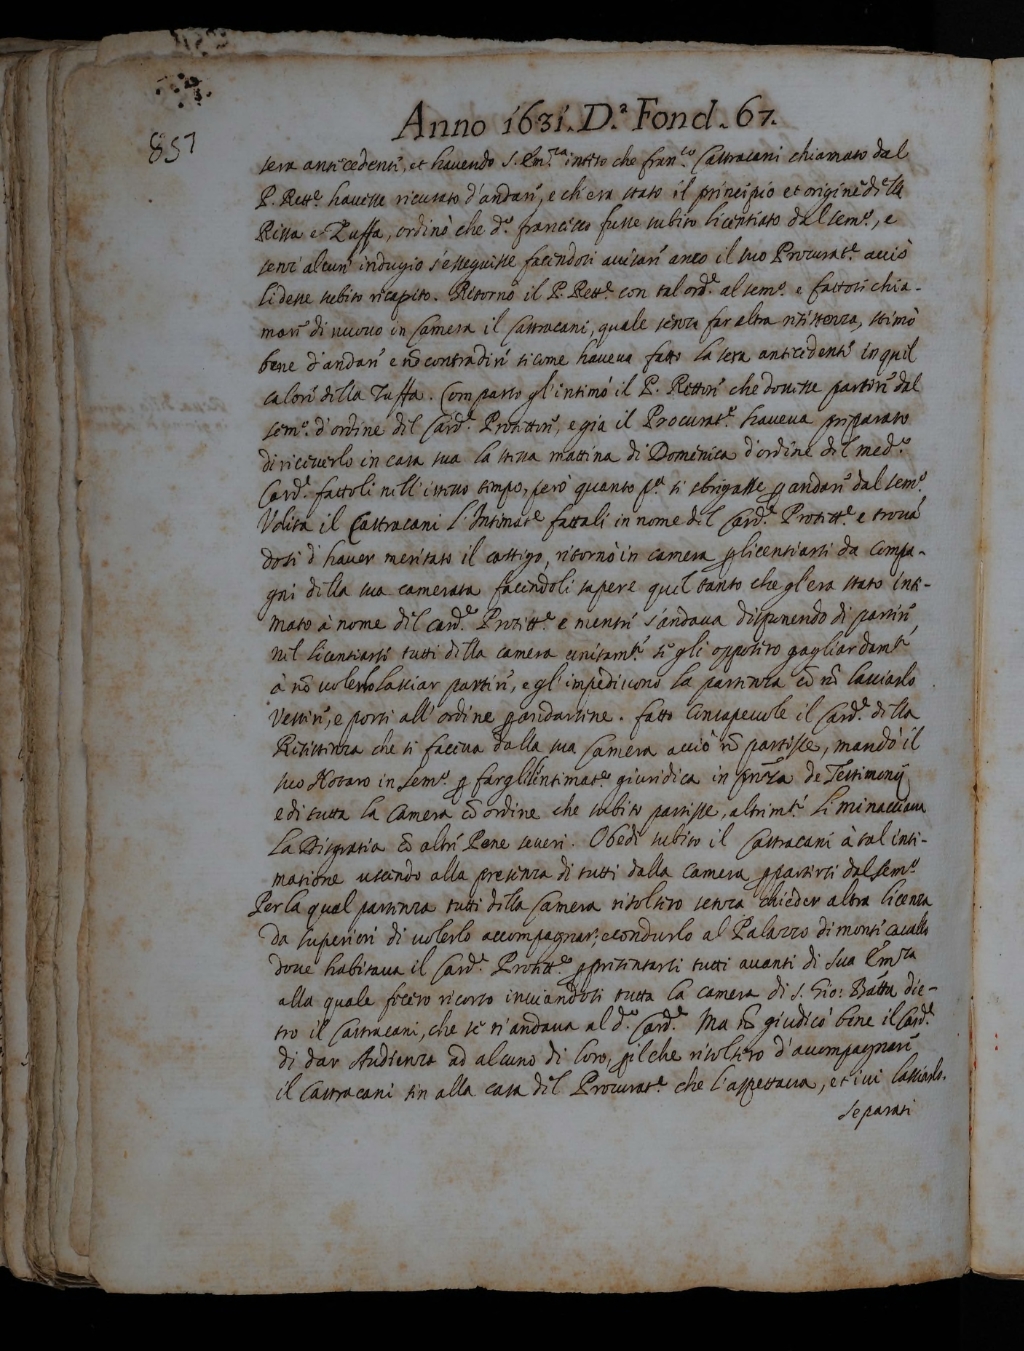 857
Anno 1631. D.ª Fond. 67.
sera antecedente, et havendo S. Em.za inteso che Fran.co Castracani chiamato dal
P. Rett.e havesse ricusato d'andare, e ch'era stato il principio et origine de la
Rissa e Zuffa, ordinò che d.o francesco fusse subito licentiato dal sem.o, e
senz'alcun indugio s'esseguisse facendosi avisare anco il suo Procurat.e acciò
li desse subito ricapito. Ritornò il P. Rett.e con tal ord.e al sem.o e fattosi chia-
mare di nuovo in Camera il Castracani, quale senza far altra resistenza, stimò
bene d'andare e nō contradire sicome haveva fatto la sera antecedente in quel
calore della Zuffa. Comparso gl'intimò il P. Rettore che dovesse partire dal
sem.o d'ordine del Card.e Protettore, e già il Procurat.e haveva preparato
di riceverlo in casa sua la stessa mattina di Domenica d'ordine del med.o
Card.e fattoli nell'istesso tempo, però quanto p.a si sbrigasse p andare dal sem.o
Udita il Castracani l'Intimat.e fattali in nome del Card.e Protett.e e trovā
dosi d'haver meritato il castigo, ritornò in camera p licentiarsi da Compa-
gni della sua camerata facendoli sapere quel tanto che gl'era stato inti-
mato à nome del Card.e Protett.e e mentre s'andava disponendo di partire
nel licentiarsi tutti della camera unitam.te se gli opposero gagliardam.te
à nō volerlo lasciar partire, e gl'impediscono la partenza cō nō lasciarlo
Vestire, e porsi all'ordine p andarsene. fatto Consapevole il Card.e della
Resistenza che si faceva dalla sua Camera acciò nō partisse, mandò il
suo Notaro in sem.o p fargl'intimat.e giuridica in pñza de Testimonij
e di tutta la Camera cō ordine che subito partisse, altrim.te li minacciava
la Disgratia cō altre Pene severe. Obedì subito il Castracani à tal inti-
matione uscendo alla presenza di tutti dalla Camera p partirsi dal sem.o
Per la qual partenza tutti della Camera risolsero senza chieder altra licenza
da superiori di volerlo accompagnar, e condurlo al Palazzo di monte cavallo
dove habitava il Card.e Protett.e p presentarsi tutti avanti di Sua Em.za
alla quale fecero ricorso inviandosi tutta la camera di S. Gio: Batta die-
tro il Castracani, che se n'andava al d.o Card.e Ma nō giudicò bene il Card.e
di dar Audienza ad alcuno di loro, p il che risolsero d'accompagnare
il Castracani sin alla casa del Procurat.e che l'aspettava, et ivi lasciarlo.
Separati